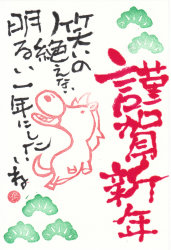 謹賀新年
笑いの
絶えない
明るい一年にしたいね